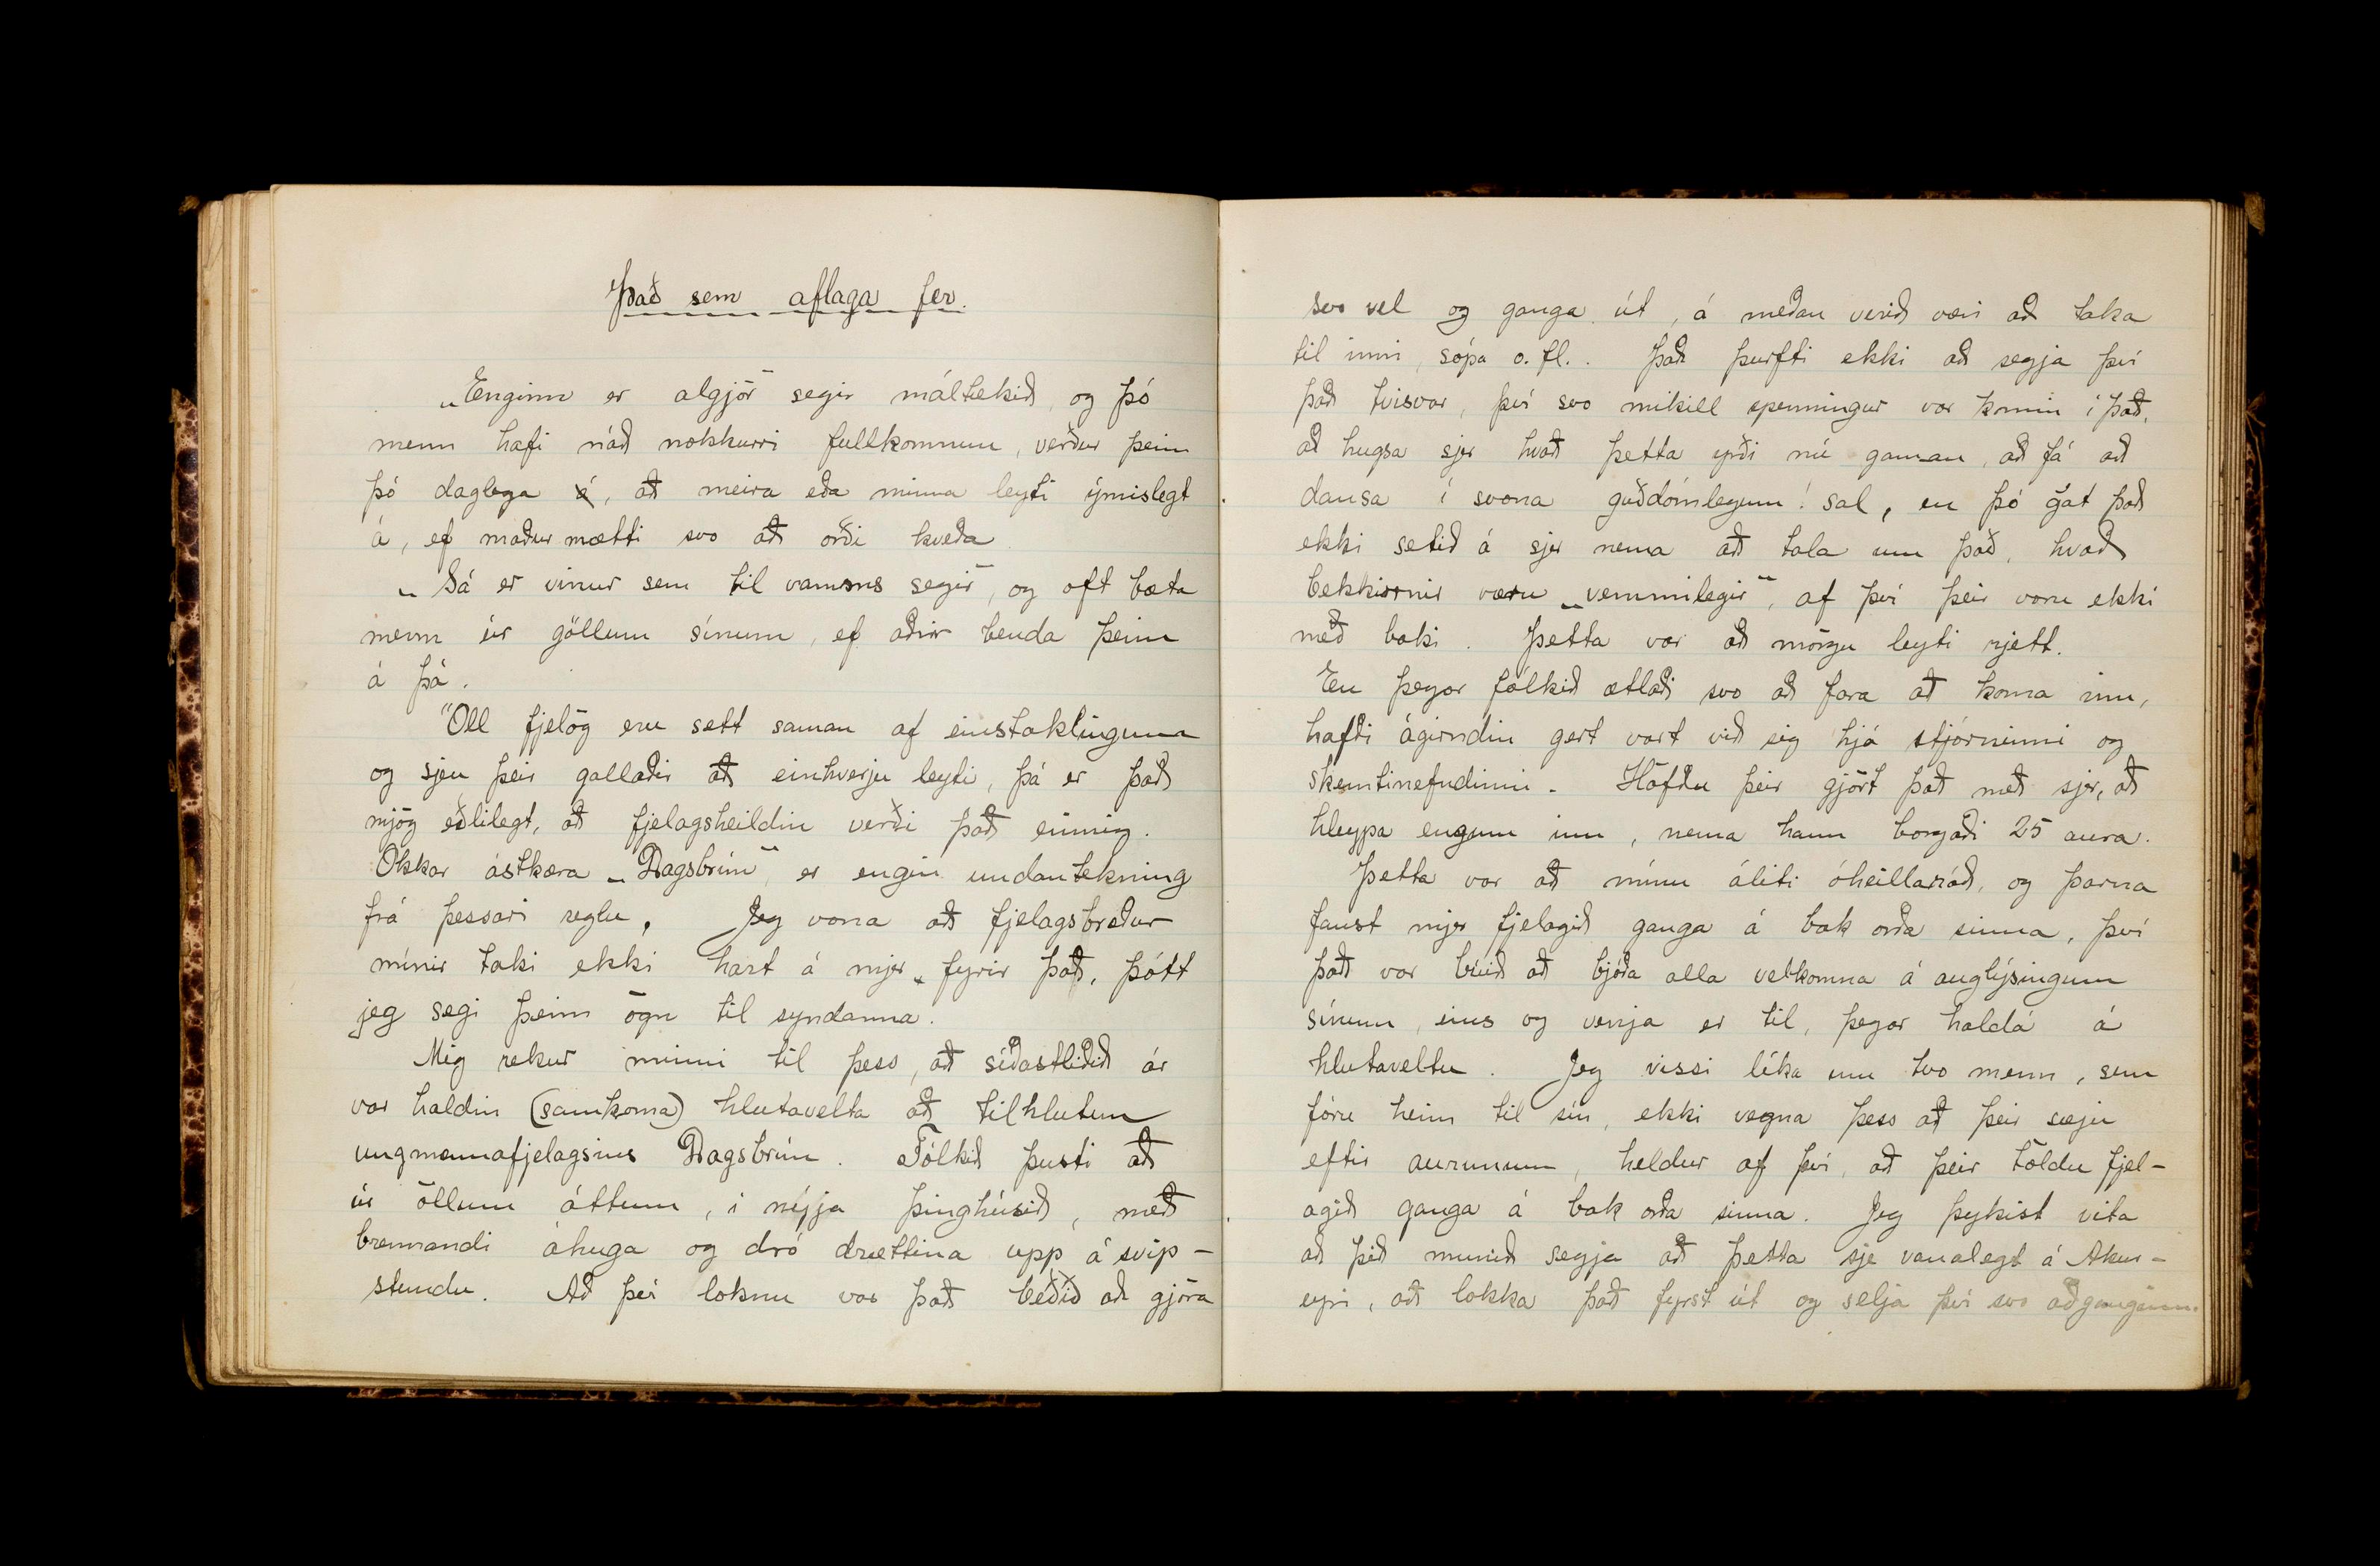 Það sem aflaga fer.
„Enginn er algjör“ segir máltekið, og þó
menn hafi náð nokkurri fullkomnun, verður þeim
þó daglega á, að meira eða minna leyti ýmislegt
á, ef maður mætti svo að orði kveða
„Sá er vinur sem til vamsns segir“, og oft bæta
menn úr göllum sínum, ef aðrir benda þeim
á þá.
Öll fjelög eru sett saman af einstaklingum
og sjeu þeir gallaðir að einhverju leyti, þá er það
mjög eðlilegt, að fjelagsheildin verði það einnig.
Okkar ástkæra „Dagsbrún“ er engin undantekning
frá þessari reglu. Jeg vona að fjelagsbræður
mínir taki ekki hart á mjer, fyrir það, þótt
jeg segi þeim ögn til syndanna.
Mig rekur minni til þess, að síðastliðið ár
var haldin (samkoma) hlutavelta að tilhlutun
ungmennafjelagsins Dagsbrún. Fólkið þusti að
úr öllum áttum, í nýja þinghúsið, með
brennandi áhuga og dró drættina upp á svip-
stundu. Að því loknu var það beðið að gjöra
svo vel og ganga út, á meðan verið væri að taka
til inni, sópa o.fl.. Það þurfti ekki að segja því
það tvisvar, því svo mikill spenningur var komin í það,
að hugsa sjer hvað þetta yrði nú gaman, að fá að
dansa í svona guðdómlegum! sal, en þó gat það
ekki setið á sjer nema að tala um það, hvað
bekkirnir væru „vemmilegir“, af því þeir voru ekki
með baki. Þetta var að mörgu leyti rjett.
En þegar fólkið ætlaði svo að fara að koma inn,
hafði ágirndin gert vart við sig hjá stjórninni og
skemtinefndinni. Höfðu þeir gjört það með sjer, að
hleypa engum inn, nema hann borgaði 25 aura.
Þetta var að mínu áliti óheillaráð, og þarna
fanst mjer fjelagið ganga á bak orða sinna, því
það var búið að bjóða alla velkomna á auglýsingum
sínum, eins og venja er til, þegar halda á
hlutaveltu. Jeg vissi líka um tvo menn, sem
fóru heim til sín, ekki vegna þess að þeir sæju
eftir aurunum, heldur af því, að þeir töldu fjel-
agið ganga á bak orða sinna. Jeg þykist vita
að þið munið segja að þetta sje vanalegt á Akur-
eyri, að lokka það fyrst út og selja því svo aðganginn.